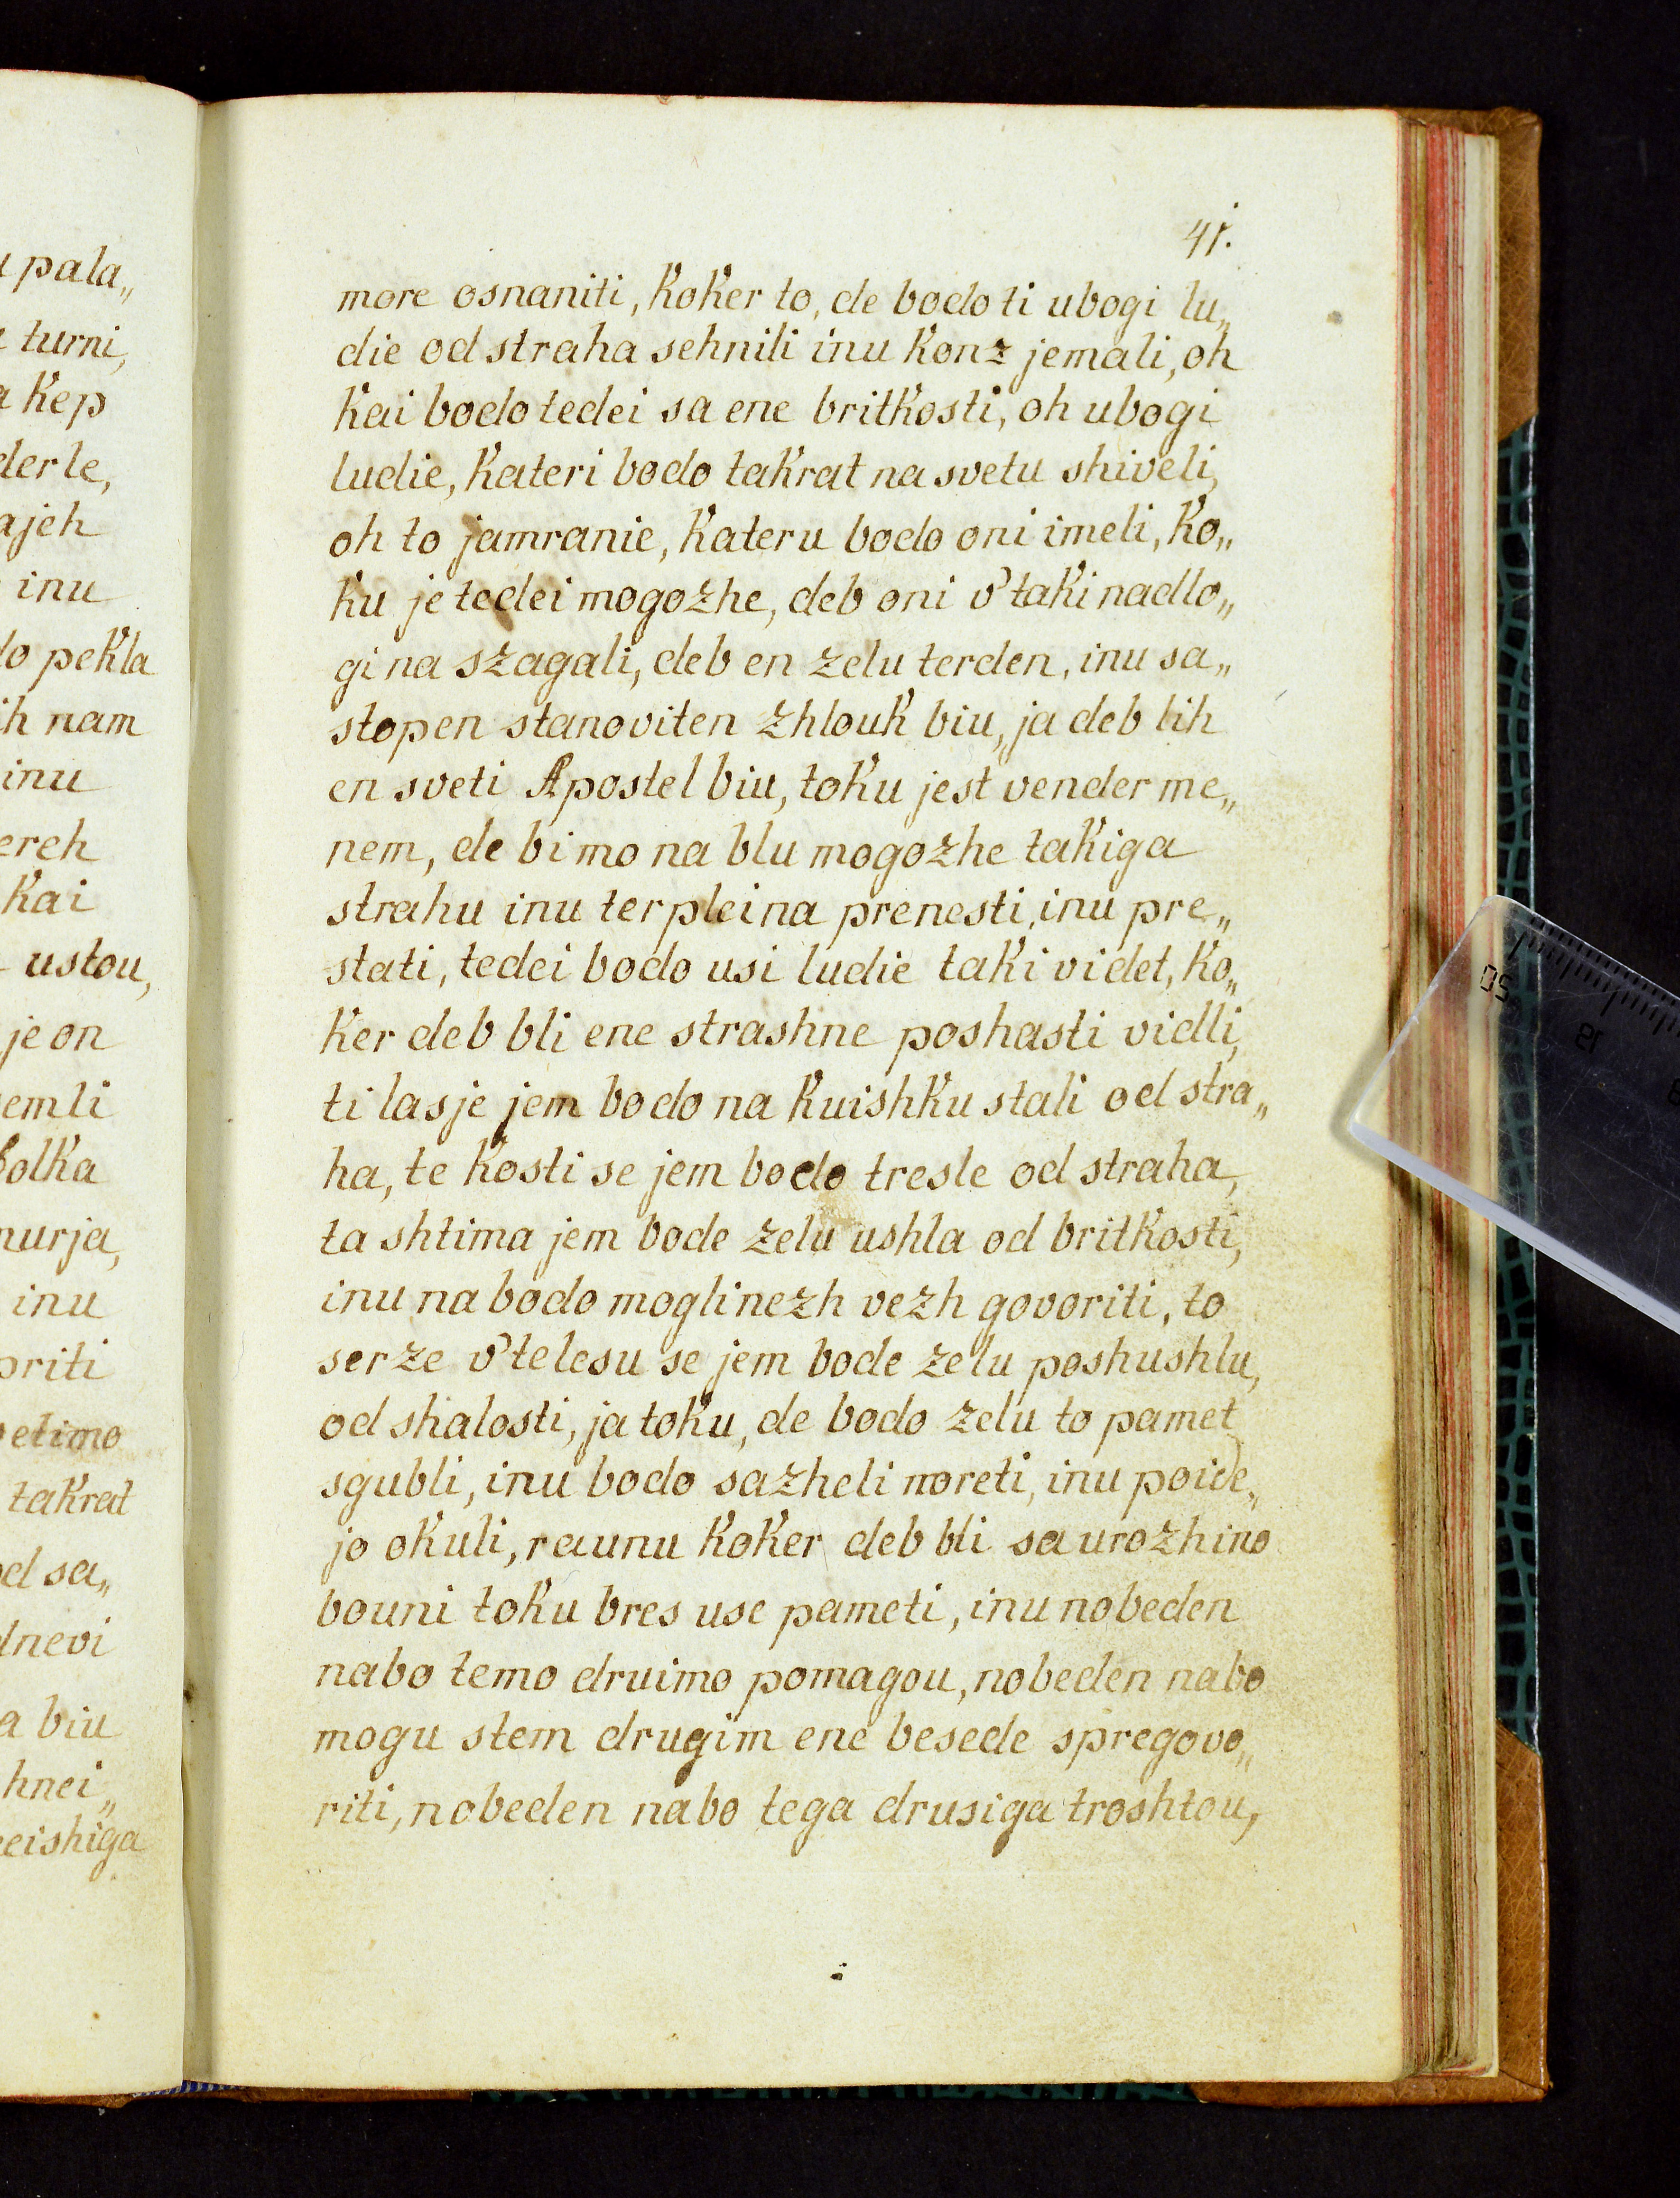 u pala„
turni,
kep
derle,
ajeh
inu
do pekla
ih nam
inu
ereh
kai
ustou,
je on
emli
folka
murja,
inu
priti
etimo
takrat
od sa„
dnevi
a biu
hnei„
eishiga
41.
more osnaniti, koker to, de bodo ti ubogi lu„
die od straha sehnili inu konz jemali, oh
kai bodo tedei sa ene britkosti, oh ubogi
ludie, kateri bodo takrat na svetu shiveli,
oh to jamranie, kateru bodo oni imeli, ko„
ku je tedei mogozhe, deb oni v' taki nadlo„
gi na szagali, deb en zelu terden, inu sa„
stopen stanoviten zhlouk biu, ja deb lih
en sveti Apostel biu, toku jest vender me„
nem, de bi mo na blu mogozhe takiga
strahu inu terpleina prenesti, inu pre„
stati, tedei bodo usi ludie taki videt, ko„
ker deb bli ene strashne poshasti vidli,
ti lasje jem bodo na kuishku stali od stra„
ha, te kosti se jem bodo tresle od straha,
ta shtima jem bode zelu ushla od britkosti,
inu na bodo mogli nezh vezh govoriti, to
serze v' telesu se jem bode zelu poshushlu,
od shalosti, ja toku, de bodo zelu to pamet
sgubli, inu bodo sazheli noreti, inu poide„
jo okuli, raunu koker deb bli sa urozhino
bouni toku bres use pameti, inu nobeden
nabo temo druimo pomagou, nobeden nabo
mogu stem drugim ene besede spregovo„
riti, nobeden nabo tega drusiga troshtou,
50